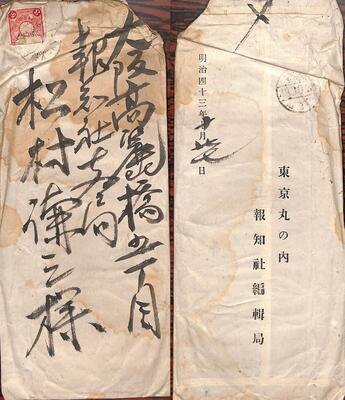 大阪高麗橋五丁目
報知社支局
松村謙三様
明治四十三年十月 日
東京丸の内
報知社編輯局